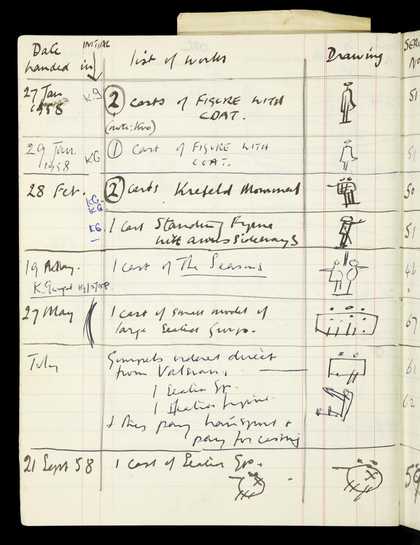 Date handed in
INITIAL
list of works
Drawing
27 Jan 1958
KG
2 casts of FIGURE WITH
COAT.
(note: two)
51
29 Jan 1958
KG
1 cast of FIGURE WITH
COAT.
51
28 Feb.
KG
KG
2 casts Krefeld Monument
50
KG
1 cast Standing Figure
with arms sideways
51
19
1 cast of The Seasons
27 May
1 cast of small model of
large Group.
67
July
Gimpels ordered direct
from
1
1 figure
& they pay transport &
pay for casting
21 Sept 58
1 cast of